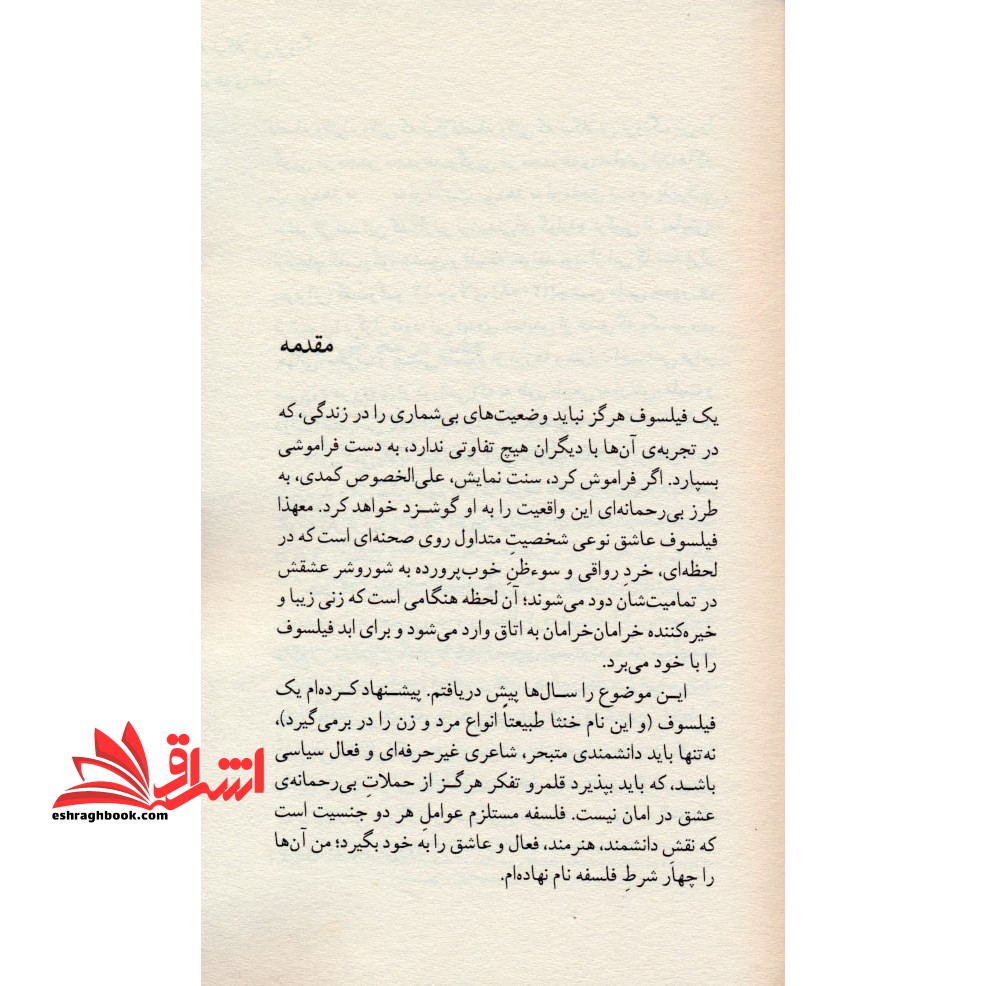 مقدمه
یک فیلسوف هرگز نباید وضعیت‌های بی‌شماری را در زندگی، که
در تجربه‌ی آن‌ها با دیگران هیچ تفاوتی ندارد، به دست فراموشی
بسپارد. اگر فراموش کرد، سنت نمایش، علی‌الخصوص کمدی، به
طرز بی‌رحمانه‌ای این واقعیت را به او گوشزد خواهد کرد. معهذا
فیلسوف عاشق نوعی شخصیتِ متداول روی صحنه‌ای است که در
لحظه‌ای، خردِ رواقی و سوءظنِ خوب‌پرورده به شوروشر عشقش
در تمامیت‌شان دود می‌شوند؛ آن لحظه هنگامی است که زنی زیبا و
خیره‌کننده خرامان‌خرامان به اتاق وارد می‌شود و برای ابد فیلسوف
را با خود می‌برد.
این موضوع را سال‌ها پیش دریافتم. پیشنهاد کرده‌ام یک
فیلسوف (و این نام خنثا طبیعتاً انواع مرد و زن را در برمی‌گیرد)،
نه‌تنها باید دانشمندی متبحر، شاعری غیرحرفه‌ای و فعال سیاسی
باشد، که باید بپذیرد قلمرو تفکر هرگز از حملاتِ بی‌رحمانه‌ی
عشق در امان نیست. فلسفه مستلزم عواملِ هر دو جنسیت است
که نقش دانشمند، هنرمند، فعال و عاشق را به خود بگیرد؛ من آن‌ها
را چهار شرطِ فلسفه نام نهاده‌ام.
اشراق
eshraghbook.com